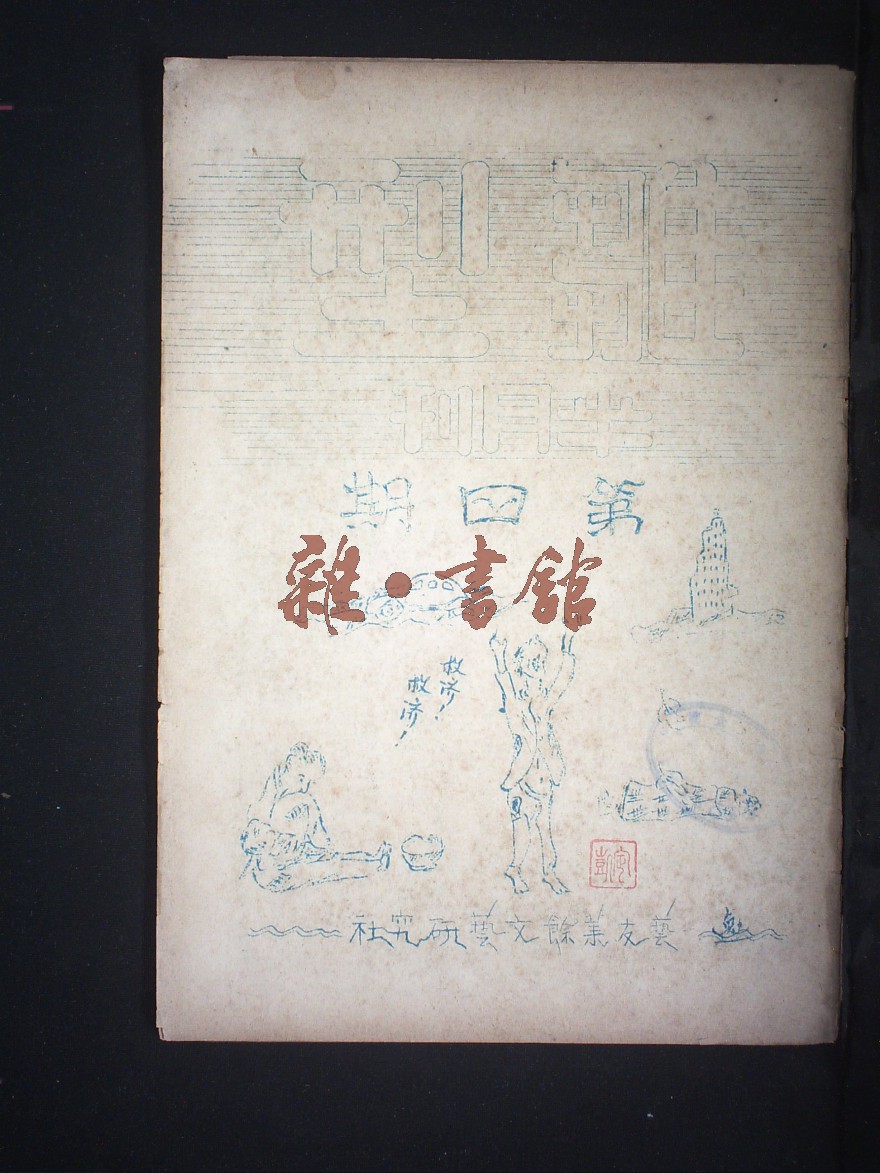 雛型
半月刊
第四期
雜·書館
救济!
救济!
藝友業餘文藝研究社